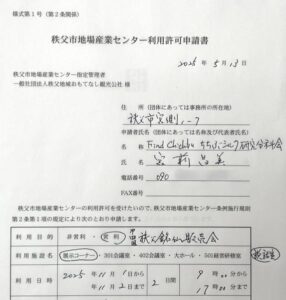 様式第1号（第2条関係）
秩父市地場産業センター利用許可申請書
2025年5月13日
秩父市地場産業センター指定管理者
一般社団法人秩父地域おもてなし観光公社 様
住 所（団体にあっては事務所の所在地）
秩父市宮側1-7
申請者氏名（団体にあっては名称及び代表者氏名）
名 称 Find Chichibu
氏 名
電話番号 090
FAX番号
秩父市地場産業センターの利用の許可を受けたいので、秩父市地場産業センター条例施行規則
第2条第1項の規定により次のとおり申請します。
利用目的 非営利・営利 秩父銘仙販売会
利用施設名 展示コーナー・301会議室・402会議室・大ホール・501経営研修室
利用日時 2025年11月1日から 2日間 9時00分から
11月2日まで 17時00分まで